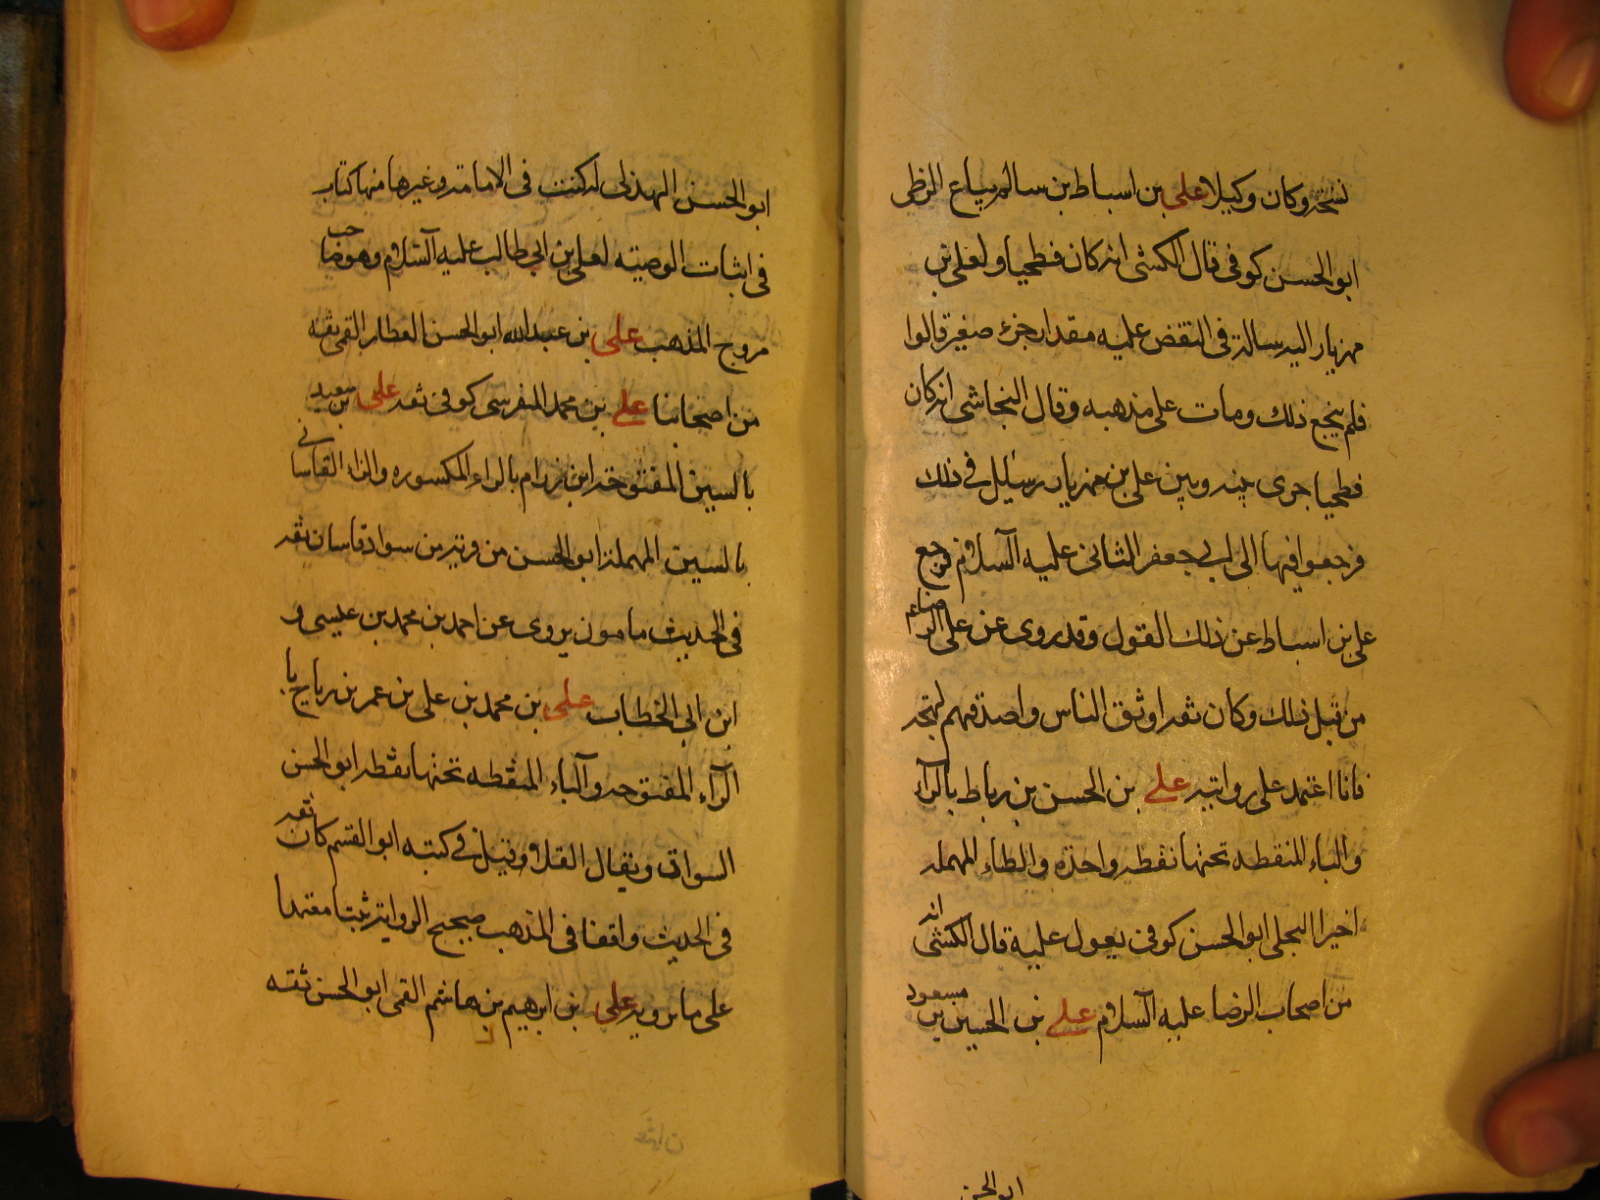 نسخة وكان وكيلا علي بن اسباط بن سالم بياع الزطي
ابو الحسن كوفي قال الكشي انه كان فطحيا ولعلي بن
مهزيار اليه رسالة في النقض عليه مقدار جزء صغير قالوا
فلم ينجع ذلك ومات على مذهبه وقال النجاشي انه كان
فطحيا جرى بينه وبين علي بن مهزيار رسايل في ذلك
فرجعوا فيها الى ابي جعفر الثاني عليه السلام فرجع
علي بن اسباط عن ذلك القول وقد روى عن الرضا ع
من قبل ذلك وكان ثقه اوثق الناس واصدقهم لهجة
فانا اعتمد على روايته علي بن الحسن بن رباط بالراء
والباء المنقطه تحتها نقطه واحدة والطاء المهمله
اخيرا البجلي ابو الحسن كوفي يعول عليه قال الكشي انه
من اصحاب الرضا عليه السلام علي بن الحسين بن مسعود
ابو الحسن
ابو الحسن الهذلي له كتب في الامامة وغيرها منها كتاب
في اثبات الوصيته لعلي بن ابي طالب عليه السلام وهو صاحب
مروج المذهب علي بن عبدالله ابو الحسن العطار القمي ثقه
من اصحابنا علي بن محمد المنفرسي كوفي ثقه علي بن سعيد
بالسين المفتوحة ابن رزام بالراء المكسوره والزاء القاساني
بالسين المهملة ابو الحسن من سواد قاسان ثقه
في الحديث مامون يروى عن احمد بن محمد بن عيسى و
ابن ابي الخطاب علي بن محمد بن علي بن عمر بن رباح با
الراء المفتوحه والباء المنقطه تحتها نقطه ابو الحسن
السواق ويقال القلا وقيل في كنيته ابو القسم كان ثقه
في الحديث واقفا في المذهب صحيح الروايه ثبتا معتمدا
على ما يرويه علي بن ابرهيم بن هاشم القمي ابو الحسن ثقه